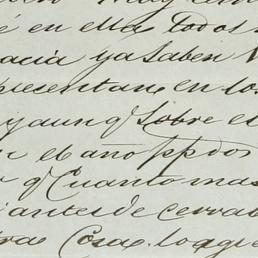 en ella todos
acia ya saben V
presentan en los
y aun q Sobre es
el año pp dos
q Cuanto mas
antes de cerrar
Cosa. lo que